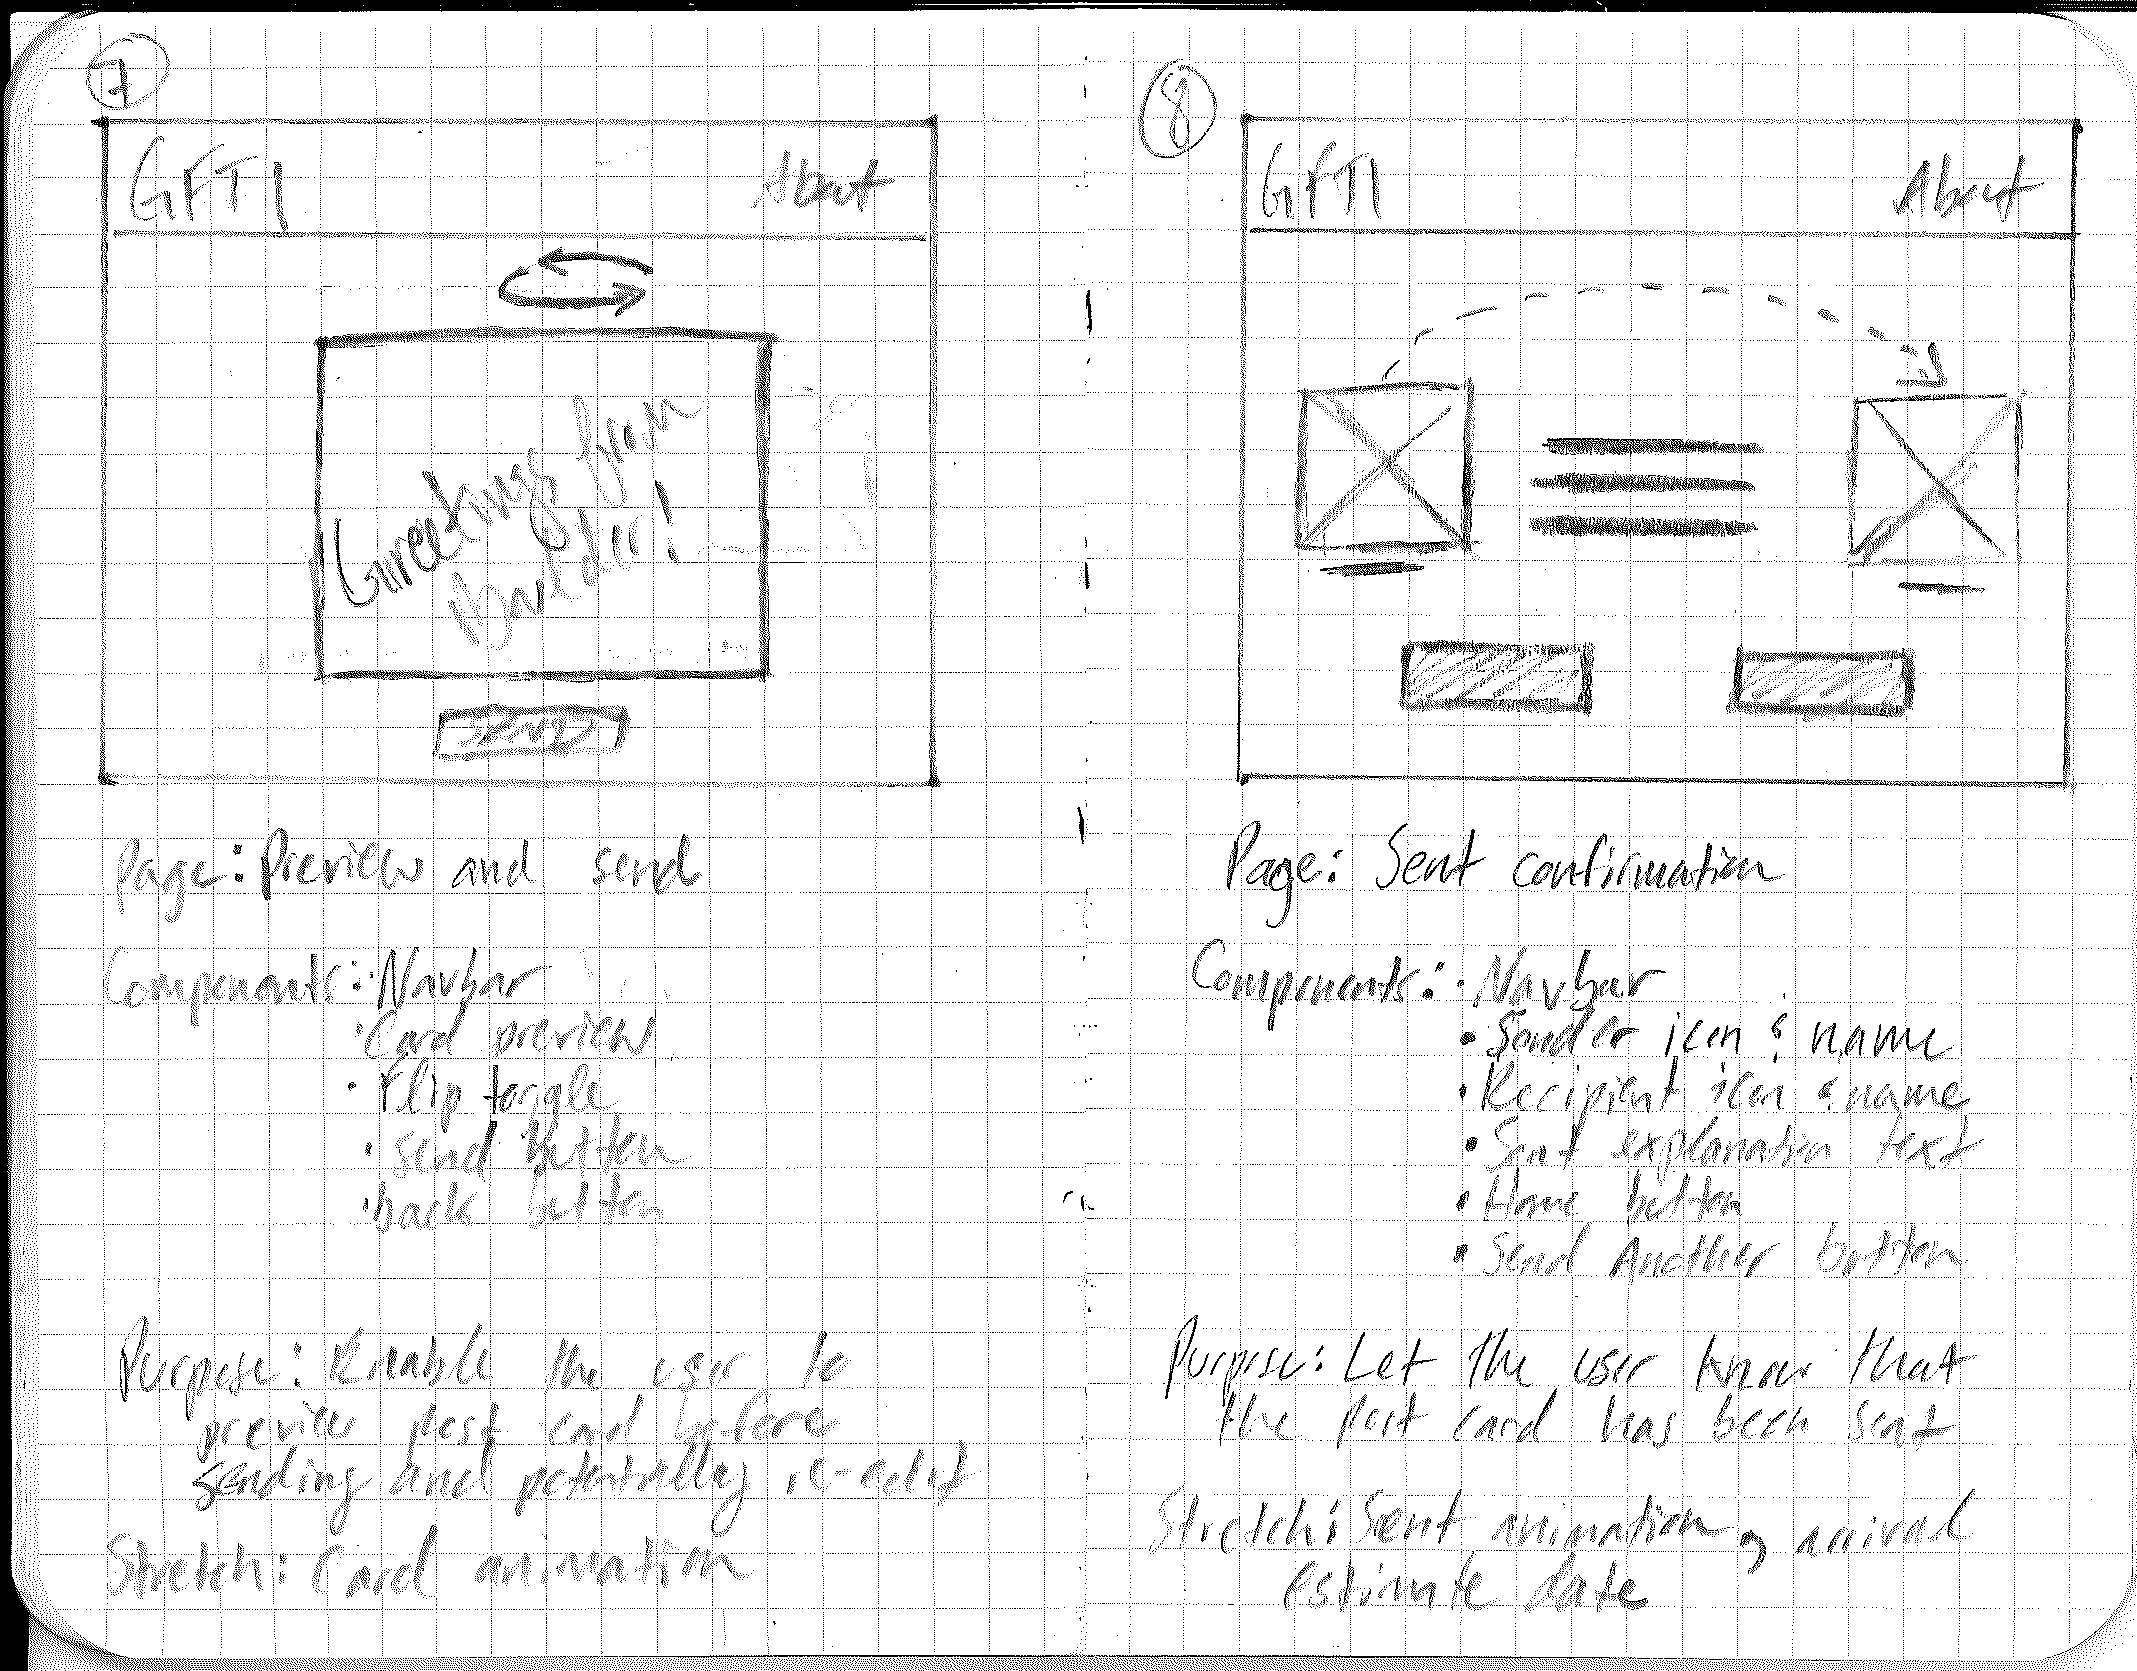 7
GFTI
About
Greetings from
Boulder!
SEND
Page: Preview and send
Components: · Navbar
· Card preview
· Flip toggle
· Send button
· back button
Purpose: Enable the user to
preview post card before
sending and potentially re-edit
Stretch: Card animation
8
GFTI
About
Page: Sent confirmation
Components: · Navbar
• Sender icon & name
• Recipient icon & name
• Sent explanation text
• Home button
• Send Another button
Purpose: Let the user know that
the post card has been sent
Stretch: Sent animation, arrival
estimate date